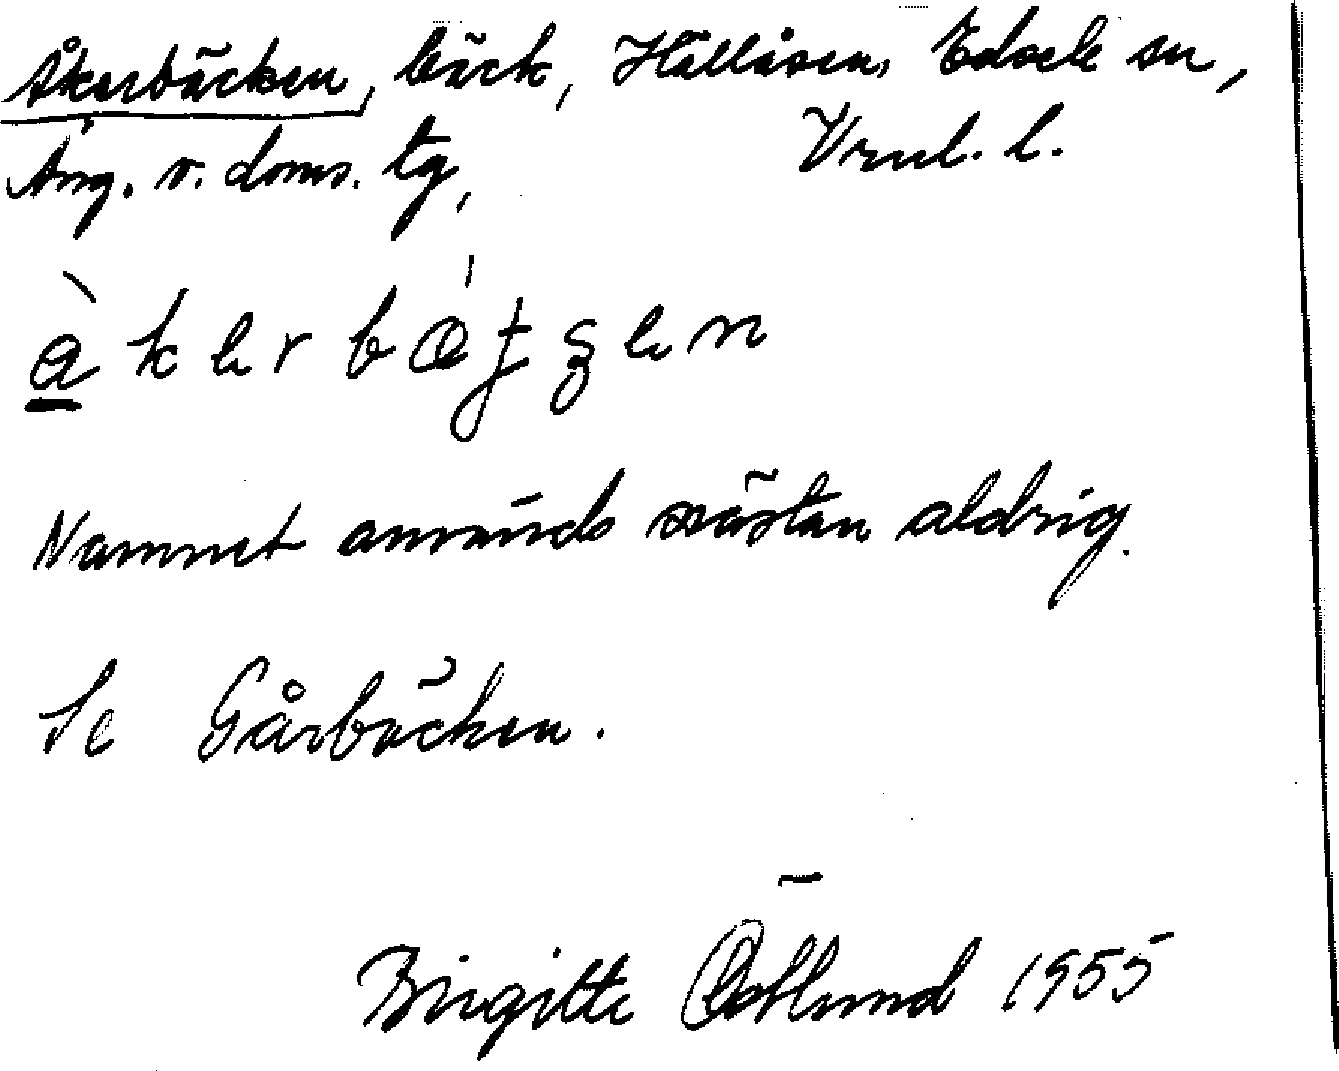 Åkerbäcken, bäck, Hällåsen, Edsele sn,
Ång. v. doms. tg, Vrnl. l.
Namnet används nästan aldrig.
Se Gårbäcken.
Birgitte Östlund 1955